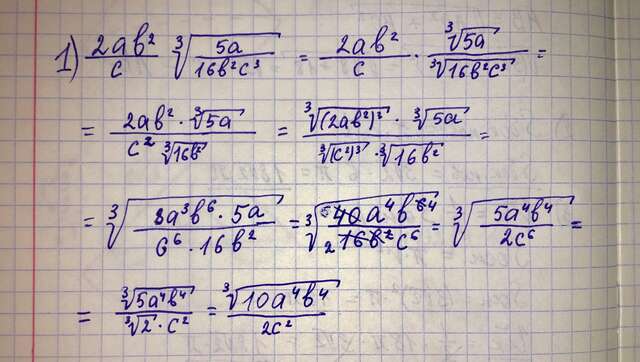 1) 2ab²/c ∛(5a/16b²c³) = 2ab²/c · ∛5a/∛16b²c³ =
= 2ab² · ∛5a/c² ∛16b² = ∛(2ab²)³ · ∛5a/∛(c²)³ · ∛16b² =
= ∛(8a³b⁶ · 5a/6⁶ · 16b²) = ∛(5 40a⁴b⁶ ⁴/2 16b²c⁶) = ∛(5a⁴b⁴/2c⁶) =
= ∛5a⁴b⁴/∛2 · c² = ∛10a⁴b⁴/2c²